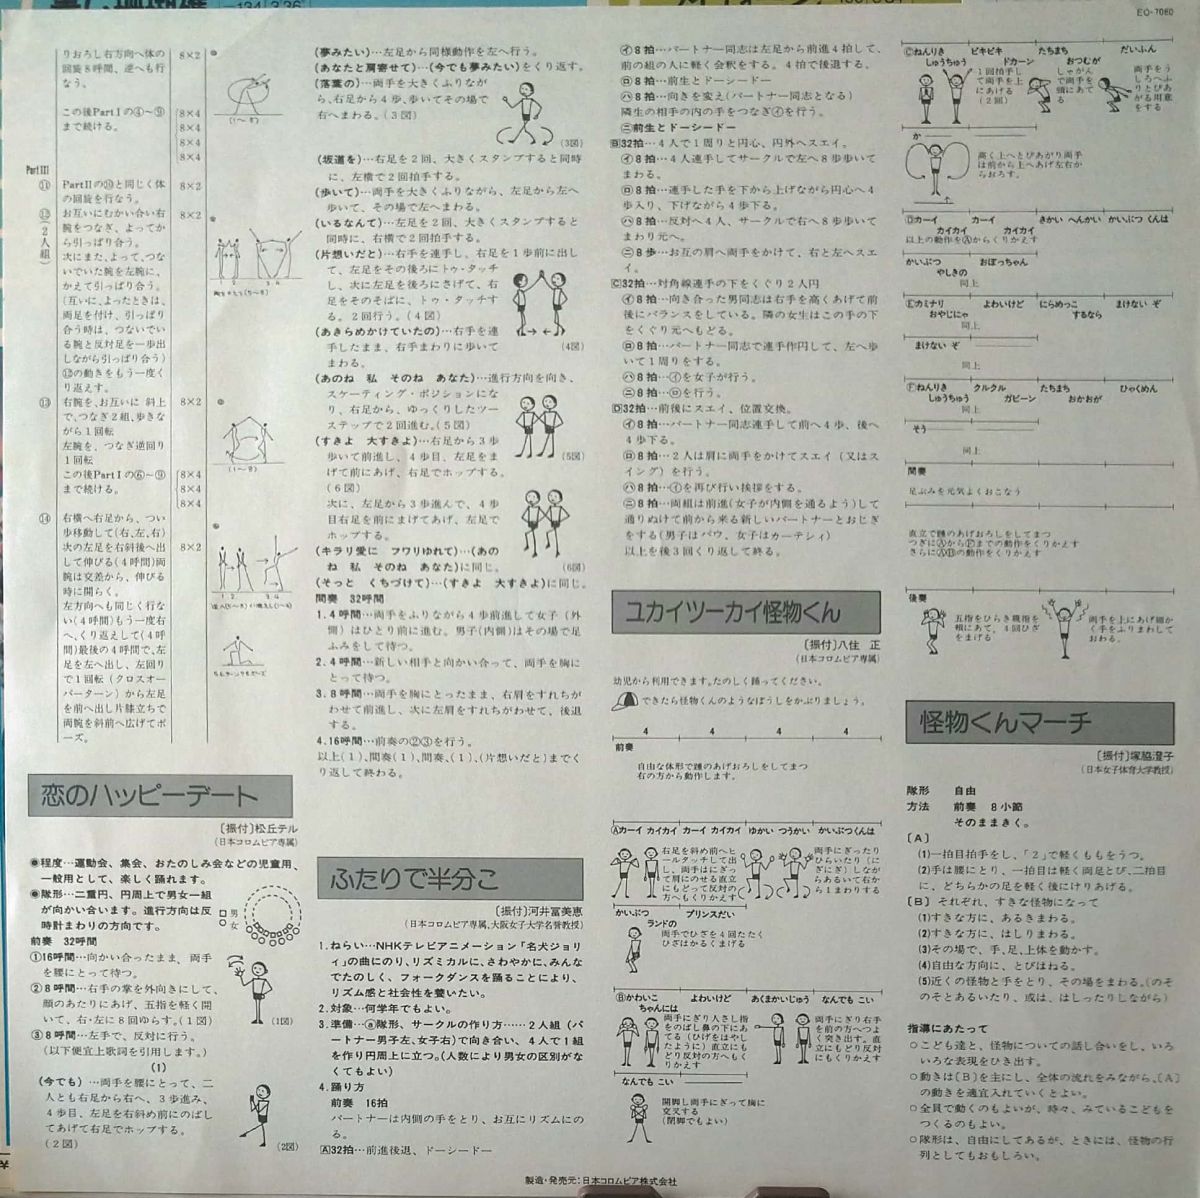 EO-7060
りおろし右方向へ体の 8×2
回旋8呼間、逆へも行
なう。
この後PartⅠの④〜⑨ 8×4
まで続ける。 8×4
8×4
8×4
(1〜8)
PartⅢ
⑪ PartⅡの⑩と同じく体 8×2
の回旋を行なう。
⑫ お互いにむかい合い右 8×2
(2人組) 腕をつなぎ、よってか
ら引っぱり合う。
次にまた、よって、つな
いでいた腕を左腕に、
かえて引っぱり合う。
(互いに、よったときは、
両足を付け、引っぱり
合う時は、つないでい
る腕と反対足を一歩出
しながら引っぱり合う)
⑫の動きをもう一度く
り返えす。
⑬ 右腕を、お互いに 斜上 8×2
で、つなぎ2組、歩きな
がら1回転
左腕を、つなぎ逆回り
1回転
(1〜8)
この後PartⅠの⑥〜⑨ 8×4
まで続ける。 8×4
8×4
⑭ 右横へ右足から、つい
歩移動して(右、左、右)
次の左足を右斜後へ出 8×2
して伸びる(4呼間)両
腕は交差から、伸びる
時に開らく。
左方向へも同じく行な
い(4呼間)もう一度右
へ、くり返えして(4呼
間)最後の4呼間で、左
足を左へ出し、左回り
で1回転(クロスオー
バーターン)から左足
を前へ出し片膝立ちで
両腕を斜前へ広げてポ
ーズ。
恋のハッピーデート
〔振付〕松丘テル
(日本コロムビア専属)
●程度…運動会、集会、おたのしみ会などの児童用、
一般用として、楽しく踊れます。
●隊形…二重円、円周上で男女一組
が向かい合います。進行方向は反
時計まわりの方向です。
□男
○女
前奏 32呼間
①16呼間…向かい合ったまま、両手
を腰にとって待つ。
②8呼間…右手の掌を外向きにして、
顔のあたりにあげ、五指を軽く開
いて、右・左に8回ゆらす。(1図)
(1図)
③8呼間…左手で、反対に行う。
(以下便宜上歌詞を引用します。)
(1)
(今でも)…両手を腰にとって、二
人とも右足から右へ、3歩進み、
4歩目、左足を右斜め前にのばし
てあげて右足でホップする。
(2図)
(2図)
(夢みたい)…左足から同様動作を左へ行う。
(あなたと肩寄せて)…(今でも夢みたい)をくり返す。
(落葉の)…両手を大きくふりなが
ら、右足から4歩、歩いてその場で
右へまわる。(3図)
(3図)
(坂道を)…右足を2回、大きくスタンプすると同時
に、左横で2回拍手する。
(歩いて)…両手を大きくふりながら、左足から左へ
歩いて、その場で左へまわる。
(いるなんて)…左足を2回、大きくスタンプすると
同時に、右横で2回拍手する。
(片想いだと)…右手を連手し、右足を1歩前に出し
て、左足をその後ろにトゥ・タッチ
し、次に左足を後ろにさげて、右
足をそのそばに、トゥ・タッチす
る。2回行う。(4図)
(あきらめかけていたの)…右手を連
手したまま、右手まわりに歩いて
まわる。
(4図)
(あのね 私 そのね あなた)…進行方向を向き、
スケーティング・ポジションにな
り、右足から、ゆっくりしたツー
ステップで2回進む。(5図)
(すきよ 大すきよ)…右足から3歩
歩いて前進し、4歩目、左足をま
げて前にあげ、右足でホップする。
(6図)
(5図)
次に、左足から3歩進んで、4歩
目右足を前にまげてあげ、左足で
ホップする。
(キラリ愛に フワリゆれて)…(あの
ね 私 そのね あなた)に同じ。
(6図)
(そっと くちづけて)…(すきよ 大すきよ)に同じ。
間奏 32呼間
1. 4呼間…両手をふりながら4歩前進して女子(外
側)はひとり前に進む。男子(内側)はその場で足
ふみをして待つ。
2. 4呼間…新しい相手と向かい合って、両手を胸に
とって待つ。
3. 8呼間…両手を胸にとったまま、右肩をすれちが
わせて前進し、次に左肩をすれちがわせて、後退
する。
4. 16呼間…前奏の②③を行う。
以上(1)、間奏(1)、間奏、(1)、(片想いだと)までくり
返して終わる。
ふたりで半分こ
〔振付〕河井富美恵
(日本コロムビア専属、大阪女子大学名誉教授)
1. ねらい…NHKテレビアニメーション「名犬ジョリ
ィ」の曲にのり、リズミカルに、さわやかに、みんな
でたのしく、フォークダンスを踊ることにより、
リズム感と社会性を養いたい。
2. 対象…何学年でもよい。
3. 準備…ⓐ隊形、サークルの作り方……2人組(パ
ートナー男子左、女子右)で向き合い、4人で1組
を作り円周上に立つ。(人数により男女の区別がな
くてもよい)
4. 踊り方
前奏 16拍
パートナーは内側の手をとり、お互にリズムにの
る。
A32拍…前進後退、ドーシードー
イ8拍…パートナー同志は左足から前進4拍して、
前の組の人に軽く会釈をする。4拍で後退する。
ロ8拍…前生とドーシードー
ハ8拍…向きを変え(パートナー同志となる)
隣生の相手の内の手をつなぎイを行う。
ニ前生とドーシードー
B32拍…4人で1周りと円心、円外へスエイ。
イ8拍…4人連手してサークルで左へ8歩歩いてま
わる。
ロ8拍…連手した手を下から上げながら円心へ4
歩入り、下げながら4歩下る。
ハ8拍…反対へ4人、サークルで右へ8歩歩いて
まわり元へ。
ニ8歩…お互の肩へ両手をかけて、右と左へスエ
イ。
C32拍…対角線連手の下をくぐり2人円
イ8拍…向き合った男同志は右手を高くあげて前
後にバランスをしている。隣の女生はこの手の下
をくぐり元へもどる。
ロ8拍…パートナー同志で連手作円して、左へ歩
いて1周りをする。
ハ8拍…イを女子が行う。
ニ8拍…ロを行う。
D32拍…前後にスエイ、位置交換。
イ8拍…パートナー同志連手して前へ4歩、後へ
4歩下る。
ロ8拍…2人は肩に両手をかけてスエイ(又はス
イング)を行う。
ハ8拍…イを再び行い挨拶をする。
ニ8拍…両組は前進(女子が内側を通るよう)して
通りぬけて前から来る新しいパートナーとおじぎ
をする(男子はバウ、女子はカーテシィ)
以上を後3回くり返して終る。
ユカイツーカイ怪物くん
〔振付〕八住 正
(日本コロムビア専属)
幼児から利用できます。たのしく踊ってください。
できたら怪物くんのようなぼうしをかぶりましょう。
4 4 4 4
前奏
自由な体形で踵のあげおろしをしてまつ
右の方から動作します。
Ⓐカーイ カイカイ カーイ カイカイ ゆかい つうかい かいぶつくんは
右足を斜め前へヒ
ールタッチして出
し、両手はこしに
肩にのせる直立
にもどって反対の
方へもくりかえす
両手にぎったり
ひらいたり(に
ぎにぎ)しなが
らあるいて右か
ら1まわりする
かいぶつ ランドの プリンスだい
両手でひざを4回たたく
ひざはかるくまげる
Ⓑかわいこちゃんには よわいけど あくまかいじゅう なんでも こい
両手にぎり人さし指
をのばし鼻の下にあ
てる(ひげをはやし
たように)直立にも
どり反対の方へもく
りかえす
両手にぎり右手
を前の方へつよ
く突き出す。直
立にもどり反対
にもくりかえす
なんでも こい
開脚し両手にぎって胸に
交叉する
(閉脚でもよい)
Ⓒねんりき しゅうちゅう ピキピキ ドカーン たちまち おつむが だいふん
1回拍手し
て両手を上
にあげる
(2回)
しゃがん
で両手を
頭にあて
る
両手をう
しろへふ
りとびあ
がる用意
をする
か
高く上へとびあがり両手
は前から上へあげ左右か
らおろす。
Ⓓカーイ カイカイ カーイ カイカイ きかい へんかい かいぶつ くんは
以上の動作をⒶからくりかえす
かいぶつ やしきの おぼっちゃん
同上
Ⓔカミナリ おやじにゃ よわいけど にらめっこ するなら まけない ぞ
同上
まけない ぞ
同上
Ⓕねんりき しゅうちゅう クルクル ガビーン たちまち おかおが ひゃくめん
同上
そう
同上
間奏
足ぶみを元気よくおこなう
直立で踵のあげおろしをしてまつ
つぎにⒶからⒻまでの動作をくりかえす
さらにⒶⒷの動作をくりかえす
後奏
五指をひらき親指を
頬にあて、4回ひざ
をまげる。
両手を上にあげ細か
く手をふりまわして
おわる。
怪物くんマーチ
〔振付〕塚脇澄子
(日本女子体育大学教授)
隊形 自由
方法 前奏 8小節
そのままきく。
〔A〕
(1)一拍目拍手をし、「2」で軽くももをうつ。
(2)手は腰にとり、一拍目は軽く両足とび、二拍目
に、どちらかの足を軽く後にけりあげる。
〔B〕それぞれ、すきな怪物になって
(1)すきな方に、あるきまわる。
(2)すきな方に、はしりまわる。
(3)その場で、手、足、上体を動かす。
(4)自由な方向に、とびはねる。
(5)近くの怪物と手をとり、その場をまわる。(のそ
のそとあるいたり、或は、はしったりしながら)
指導にあたって
○こども達と、怪物についての話し合いをし、いろ
いろな表現をひき出す。
○動きは〔B〕を主にし、全体の流れをみながら、〔A〕
の動きを適宜入れていくとよい。
○全員で動くのもよいが、時々、みているこどもを
つくるのもよい。
○隊形は、自由にしてあるが、ときには、怪物の行
列としてもおもしろい。
製造・発売元:日本コロムビア株式会社